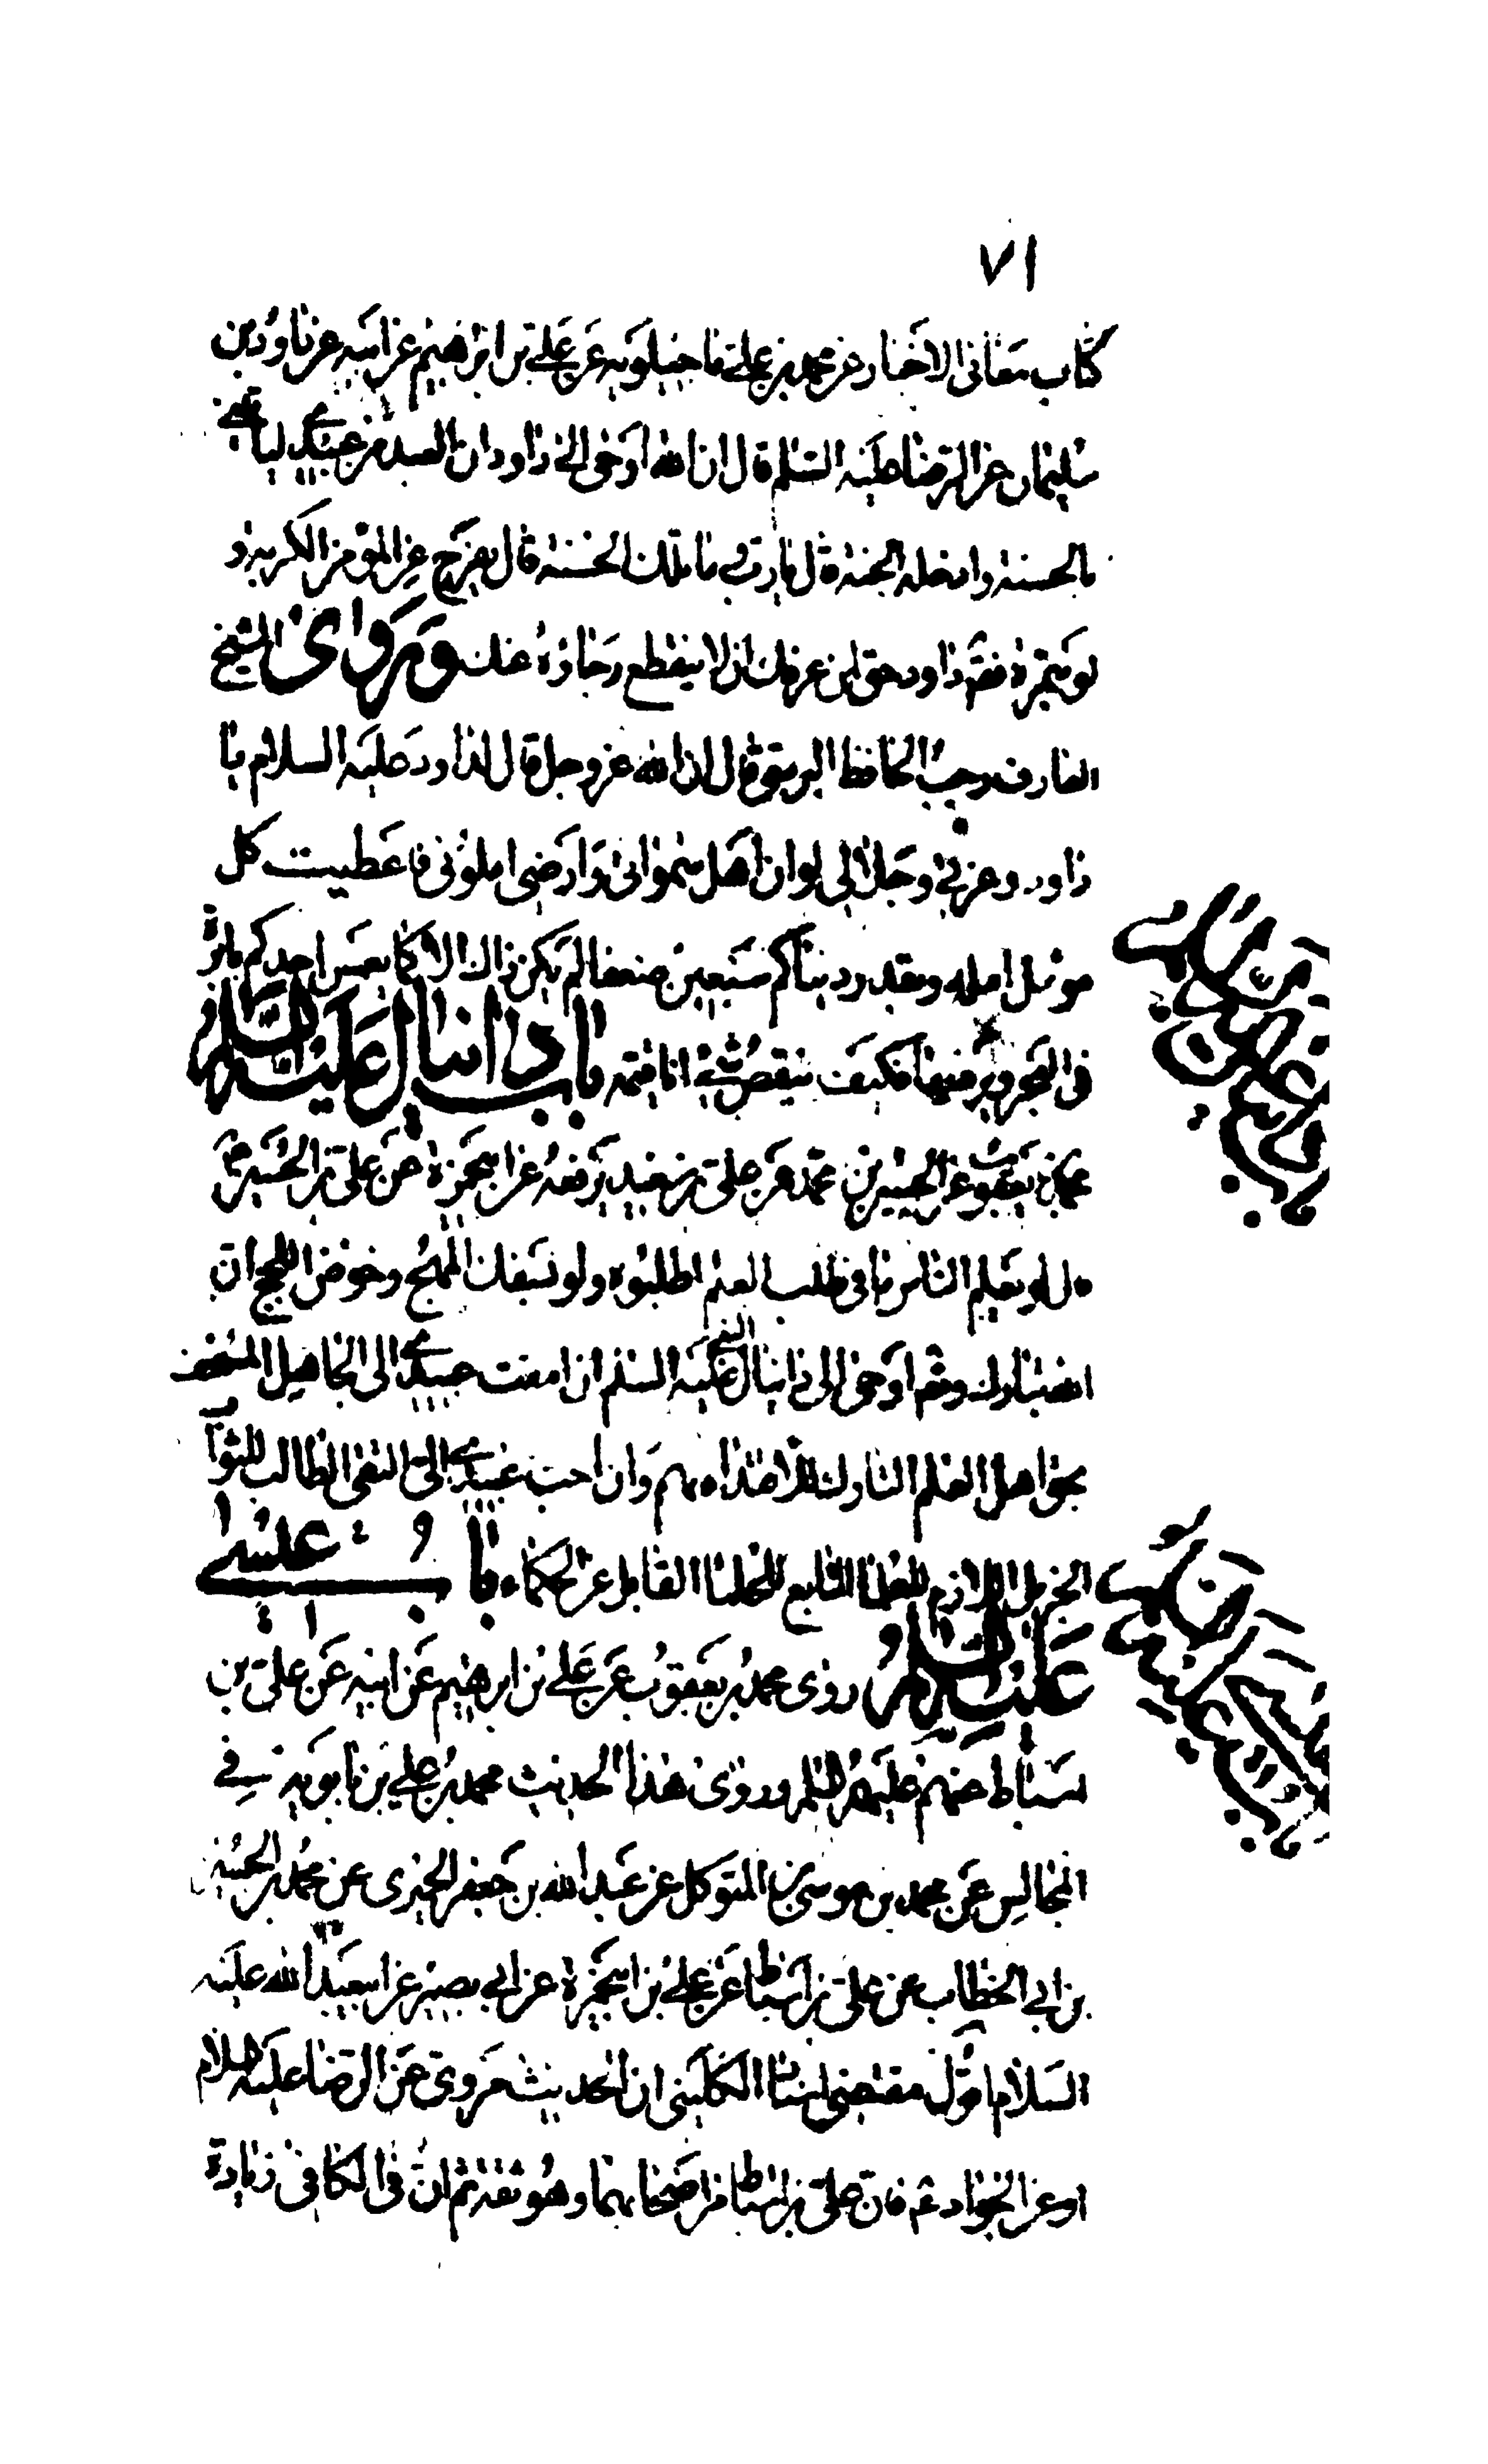 ٧١
كتاب معاني الاخبار عن محمد بن علي ماجيلويه عن علي بن ابرهيم عن ابيه عن داود بن
سليمان عن الرضا عليه السلام قال ان الله اوحى الى داود ان العبد من عبيدي لياتيني
بالحسنة وادخله الجنة قال يا رب وما تلك الحسنة قال يفرج عن المؤمن الكربه و
لو بتمرة فقال داود حق لمن عرفك ان لا ينقطع رجاؤه عنك وروى الشيخ
العارف رجب الحافظ البرسي قال ان الله عز وجل قال لداود عليه السلام يا
داود وعزتي وجلالي لو ان اهل سمواتي وارضي املوني فاعطيت كل
مومل امله وبقدر دنياكم سبعين ضعفا لم يكن ذلك الا كما يغمس احدكم ابرة
في البحر ويرفعها فكيف ينقص شيء انا قيمه باب دانيال عليه السلام
محمد بن يعقوب عن الحسين بن محمد عن علي بن محمد بن سعيد يرفعه عن ابي حمزة عن علي بن الحسين ع
قال لو يعلم الناس ما في طلب العلم لطلبوه ولو بسفك المهج وخوض اللجج ان
الله تبارك وتعالى اوحى الى دانيال النبي عليه السلم ان امقت عبيدي الى الجاهل المستخف
بحق اهل العلم التارك للاقتداء بهم وان احب عبيدي الي التقي الطالب للثواب
الجزيل اللازم للعلماء التابع للحلماء القابل عن الحكماء باب عيسى
عليه السلام روى محمد بن يعقوب عن علي بن ابرهيم عن ابيه عن علي بن
اسباط عنهم عليهم السلم وروى هذا الحديث محمد بن علي بن بابويه في
المجالس عن محمد بن موسى بن المتوكل عن عبد الله بن جعفر الحميري عن محمد بن الحسين
بن ابي الخطاب عن علي بن اسباط عن علي بن ابي حمزة عن ابي بصير عن ابي عبد الله عليه
السلام اقول مقتضى اسناد الكليني ان الحديث مروي عن الرضا عليه السلام
او عن الجواد ع فان علي بن اسباط من اصحابهما وهو ثقة ثم ان في الكافي زيادة